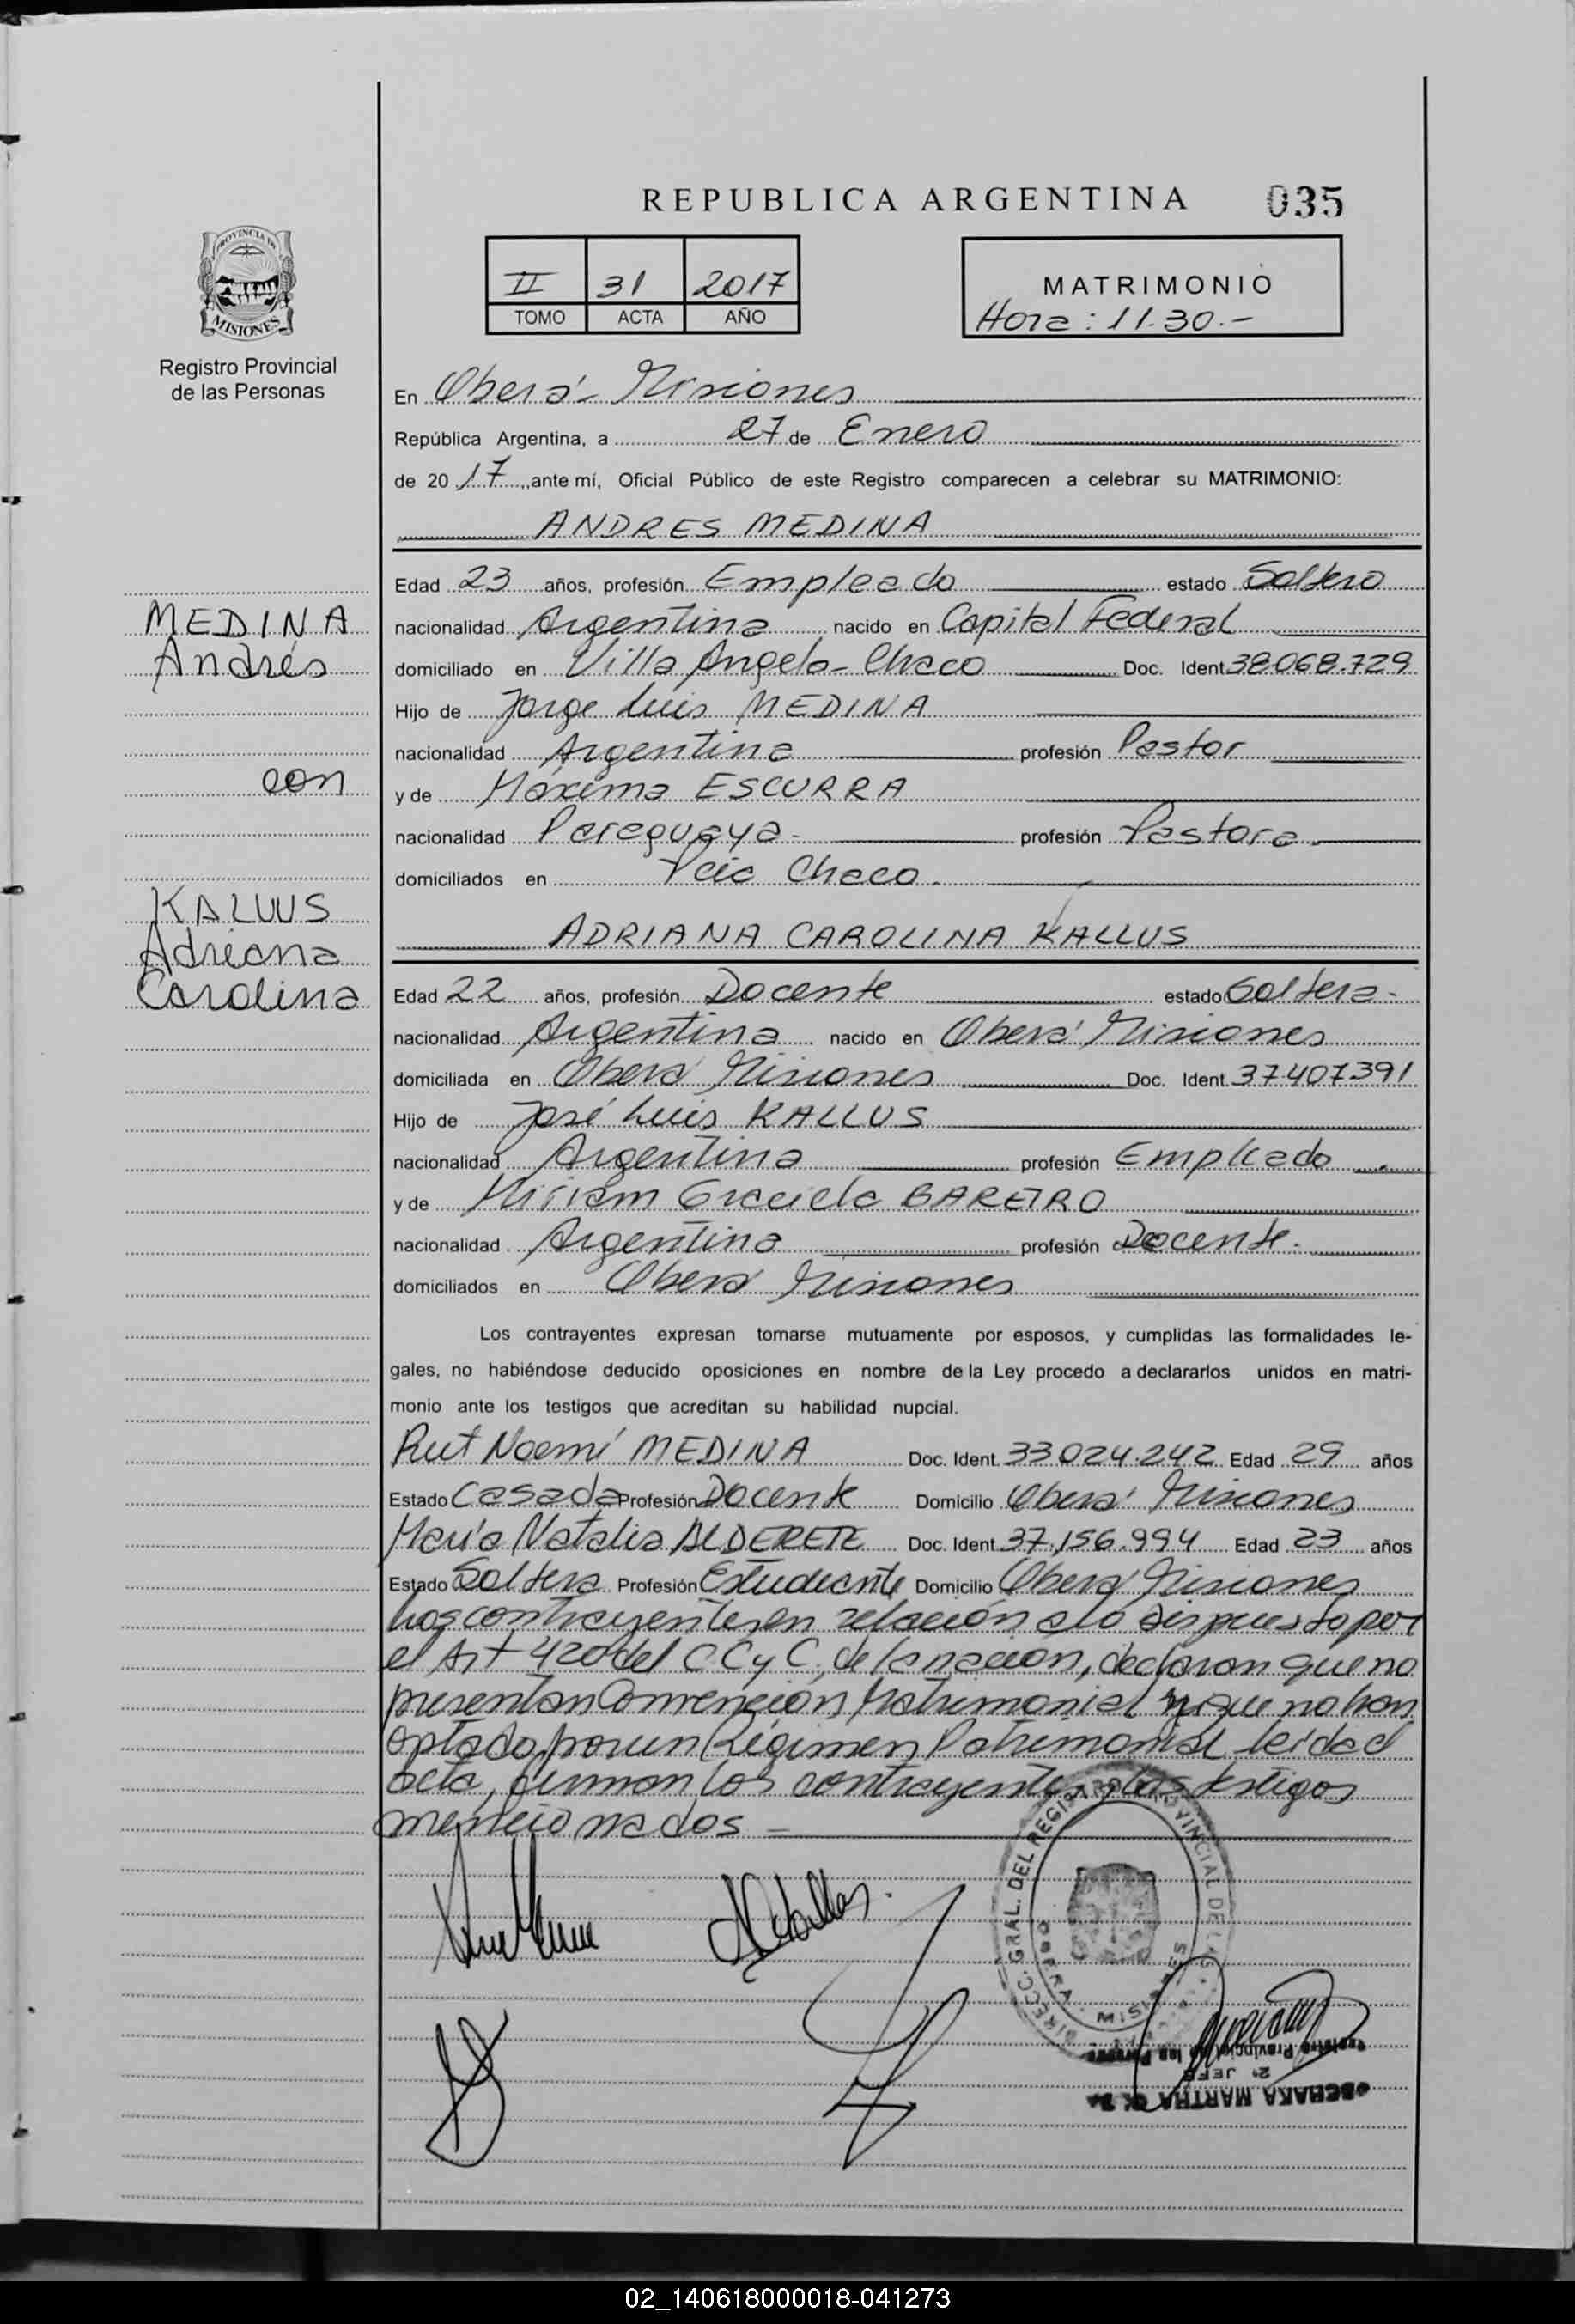 REPUBLICA ARGENTINA 035
PROVINCIA DE
MISIONES
Registro Provincial
de las Personas
II 31 2017
TOMO ACTA AÑO
MATRIMONIO
Hora : 11.30.-
En Oberá - Misiones
República Argentina, a 27 de Enero
de 20 17 ,ante mí, Oficial Público de este Registro comparecen a celebrar su MATRIMONIO:
ANDRES MEDINA
MEDINA
Andrés
con
KALLUS
Adriana
Carolina
Edad 23 años, profesión Empleado estado Soltero
nacionalidad Argentina nacido en Capital Federal
domiciliado en Villa Angela - Chaco Doc. Ident 38.068.729
Hijo de Jorge Luis MEDINA
nacionalidad Argentina profesión Pastor
y de Máxima ESCURRA
nacionalidad Paraguaya.- profesión Pastora
domiciliados en Pcia Chaco.
ADRIANA CAROLINA KALLUS
Edad 22 años, profesión Docente estado Soltera-
nacionalidad Argentina nacido en Oberá Misiones
domiciliada en Oberá Misiones Doc. Ident. 37407391
Hijo de José Luis KALLUS
nacionalidad Argentina profesión Empleado
y de Miriam Graciela BAREIRO
nacionalidad Argentina profesión Docente.
domiciliados en Oberá Misiones
Los contrayentes expresan tomarse mutuamente por esposos, y cumplidas las formalidades le-
gales, no habiéndose deducido oposiciones en nombre de la Ley procedo a declararlos unidos en matri-
monio ante los testigos que acreditan su habilidad nupcial.
Rut Noemí MEDINA Doc. Ident. 33.024.242 Edad 29 años
Estado Casada Profesión Docente Domicilio Oberá Misiones
María Natalia ALDERETE Doc. Ident. 37.156.994 Edad 23 años
Estado Soltera Profesión Estudiante Domicilio Oberá Misiones
Los contrayentes en relación a lo dispuesto por
el Art 420 del C C y C, de la nación, declaran que no
presentan Convención Matrimonial y que no han
optado por un Régimen Patrimonial leída el
acta, firman los contrayentes y los testigos
mencionados -
DIRECC. GRAL. DEL REGISTRO PROVINCIAL DE LAS
OBERA - MISIONES
Registro Provincial de las Personas
2º JEFE
MARTHA
02_140618000018-041273